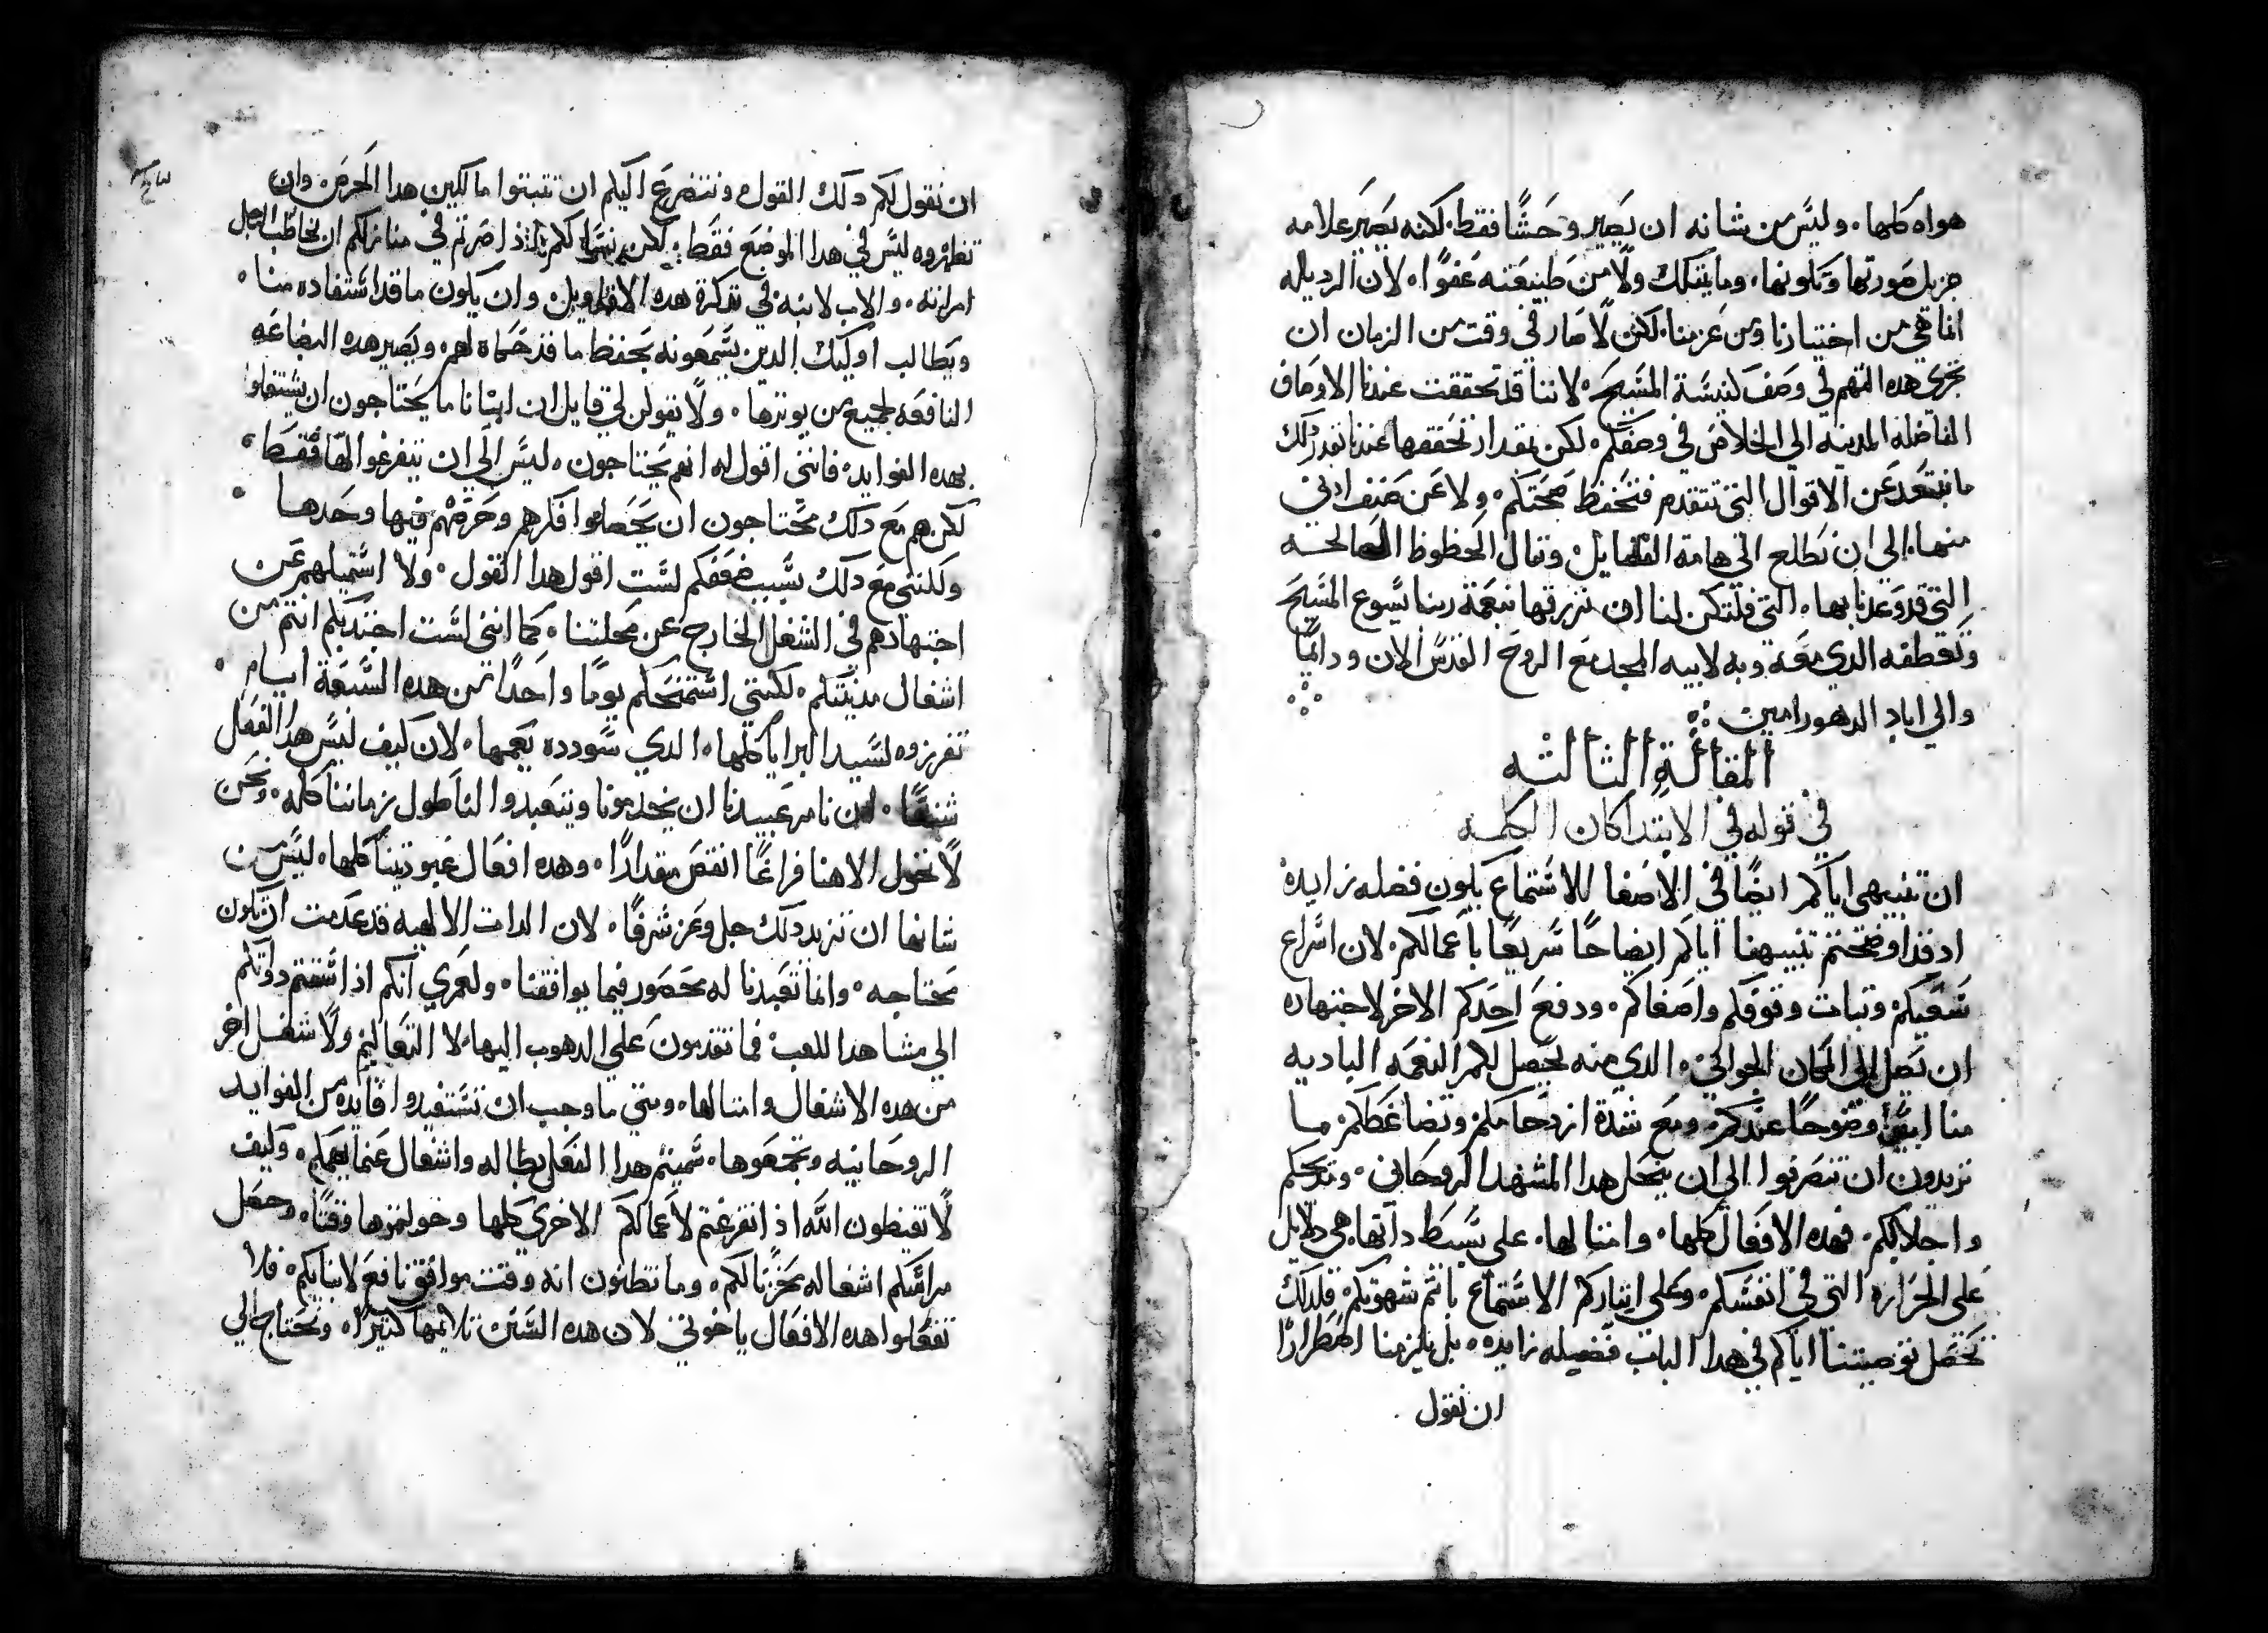 هواه كلها. وليس من شانه ان يصير وحشًا فقط. لكنه يصير علامه
جزيل صورتها وتلونها. وما يمتلك ولا من طبيعته عفوًا. لان الرديله
انما هي من اختيارنا ومن عزمنا. لكن لا صار في وقت من الزمان ان
تجري هده التهم في وصف كنيسة المسيح. لاننا قد تحققت عندنا الاوصاف
الفاضله المدينه الي الخلاص في وصفكم. لكن بمقدار تحققها عندنا بقدر دلك
ما نبتعد عن الاقوال التي تتقدم فتحفظ صحتكم. ولا عن صنف ادني
منها. الي ان نطلع الي هامة الفضايل. وننال الحظوظ الصالحه
التي قد وعدنا بها. التي فلتكن لنا ان نرزقها بنعمة ربنا يسوع المسيح
وتعطفه الدي معه وبه لابيه المجد مع الروح القدس الان ودايمًا
والي اباد الدهور امين
المقالة الثالثه
في قوله في الابتدا كان الكلمه
ان تنبيهي اياكم ايضًا في الاصغا للاستماع يكون فضله زايده
اد قد اوضحتم تنبيهنا اياكم ايضاحًا سريعًا باعمالكم. لان اسراع
سعيكم وتبات وقوفكم واصغاكم. ودفع احدكم الاخر لاجتهاده
ان يصل الي المكان الجواني. الدي منه يحصل لكم النعمه الباديه
منا ابين وضوحًا عندكم. ومع شدة ازدحامكم وتضاغطكم ما
تريدون ان تنصرفوا الي ان ينحل هدا المشهد الروحاني. ومديحكم
واجلالكم. فهده الافعال كلها. وامتالها. علي بسيط داتها هي دلايل
علي الحراره التي في انفسكم. وعلي ايثاركم الاستماع باتم شهوتكم. فلدلك
تحصل توصيتنا اياكم في هدا الباب فضيله زايده. بل يلزمنا اضطرارًا
ان نقول
ان نقول لكم دلك القول. ونتضرع اليكم ان تثبتوا مالكين هدا الحرص. وان
تظهروه ليس في هدا الموضع فقط. لكن نسالكم اذا صرتم في منازلكم ان يخاطب الرجل
امراته. والاب لابنه في تدكرة هده الاقاويل. وان يكون ما قد استفاده منا.
ويطالب اوليك الدين يسمعونه بحفظ ما قد حصاه لهم. ويصير هده البضاعه
النافعه لجميع من يوترها. ولا يقولن لي قايل ان ابنانا ما يحتاجون ان يشتغلوا
بهده الفوايد. فانني اقول له انهم يحتاجون. ليس الي ان يتفرغوا لها فقط.
لكن هم مع دلك محتاجون ان يحصلوا افكرهم وحرصهم فيها وحدها
ولكنني مع دلك بسبب ضعفكم لست اقول هدا القول. ولا استميلهم عن
اجتهادهم في الشغل الخارج عن محلتنا. كما انني لست اجتدبكم انتم من
اشغال مدينتكم. لكنني استمنحكم يومًا واحدًا من هده السبعة ايام.
تفرزوه لسيد البرايا كلها. الدي سودده يعمها. لان كيف ليس هدا الفعل
شنيعًا. ان نامر عبيدنا ان يخدمونا ويتعبدوا لنا طول زماننا كله. ونحن
لا نخول الاهنا فراغًا انقص مقدارًا. وهده افعال عبوديتنا كلها. ليس من
شانها ان تزيد دلك جل وعز شرفًا. لان الدات الالهيه قد عدمت ان تكون
محتاجه. وانما تعبدنا له محصور فيما يوافقنا. ولعمري انكم اذا سقتم دواتكم
الي مشاهد اللعب. فما تقدمون علي الدهوب اليها. لا التعاليم ولا شغل اخر
من هده الاشغال وامتالها. ومتي ما وجب ان تستفيدوا فايده من الفوايد
الروحانيه وتجمعوها. سميتم هدا الفعل بطاله واشغال عنا يهمكم. وكيف
لا تغيظون الله اذ اتفرغتم لاعمالكم الاخري كلها وخولتموها وقتًا. وحصل
اشغاله محزنًا لكم. وما تظنون انه وقت موافق نافع لابنايكم. فلا
تفعلوا هده الافعال ياخوتي. لان هده السنن تلايمها كتيرًا. وتحتاج الي